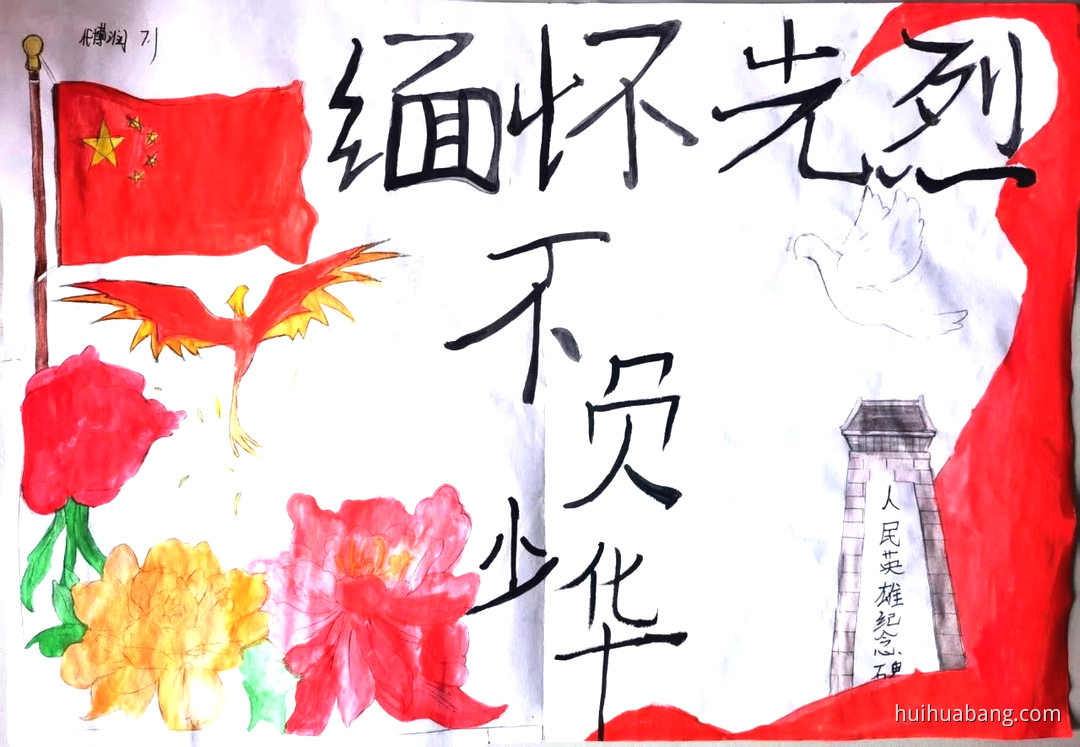 7.1
缅怀先烈
不负
少华
人民英雄纪念碑
huihuabang.com